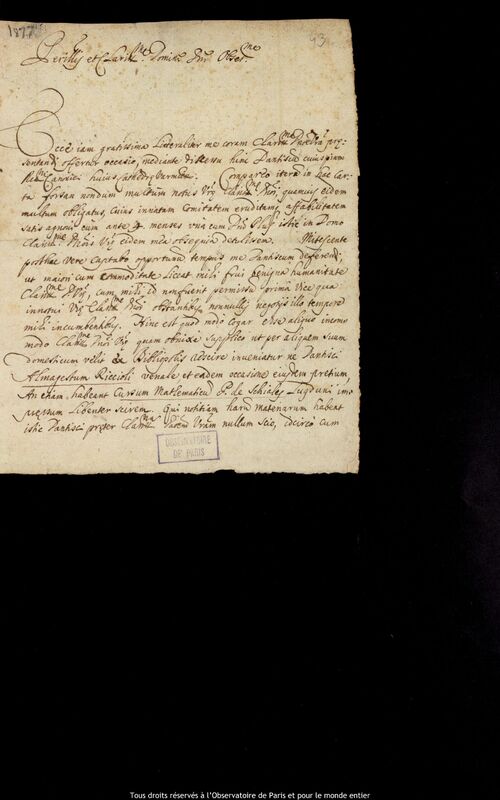 1877
93
Perillus et Clariss.me Domine Dne Obser.me
Ecce iam gratissima Litteraliter me coram Clar.ma præ-
sentandi offertur occasio, mediante discessu hinc Dantiscum cuiuspiam
R.mi Canonici huius Cathedr. Varmien. Compareo iterum in hac Car-
ta forsan nondum multum notus Clar.mae quamvis eidem
multum obligatus, Cuius innatam Comitatem eruditamq. affabilitatem
satis agnovi cum ante 4 menses una cum Dno istic in Domo
Clariss.mae eidem mea obsequia detulerem. Mitescente
Vere captabo opportunum tempus me Dantiscum deferendi,
ut maiori cum commoditate Liceat mihi frui benigna humanitate
Clar.mae cum mihi id non fuerit permissum prima Vice qua
innotui Clar.mae obstantibus nonnullis negotijs illo tempore
mihi incumbentibus. Hinc est quod modo cogar esse aliquo incom-
modo Clar.mae quam obnixe Supplico ut per aliquem suum
domesticum velit ex Bibliopolis adscire inveniatur ne Dantisci
Almagestum Riccioli venale et eadem occasione eiusdem pretium
An etiam habeant Cursum Mathematicum P. de Schiales Lugduni im-
pressum Libenter scirem. Qui notitiam harum materiarum habeat
istic Dantisci præter Clar.mam nullum Scio, idcirco cum
OBSERVATOIRE
DE PARIS
Tous droits réservés à l'Observatoire de Paris et pour le monde entier